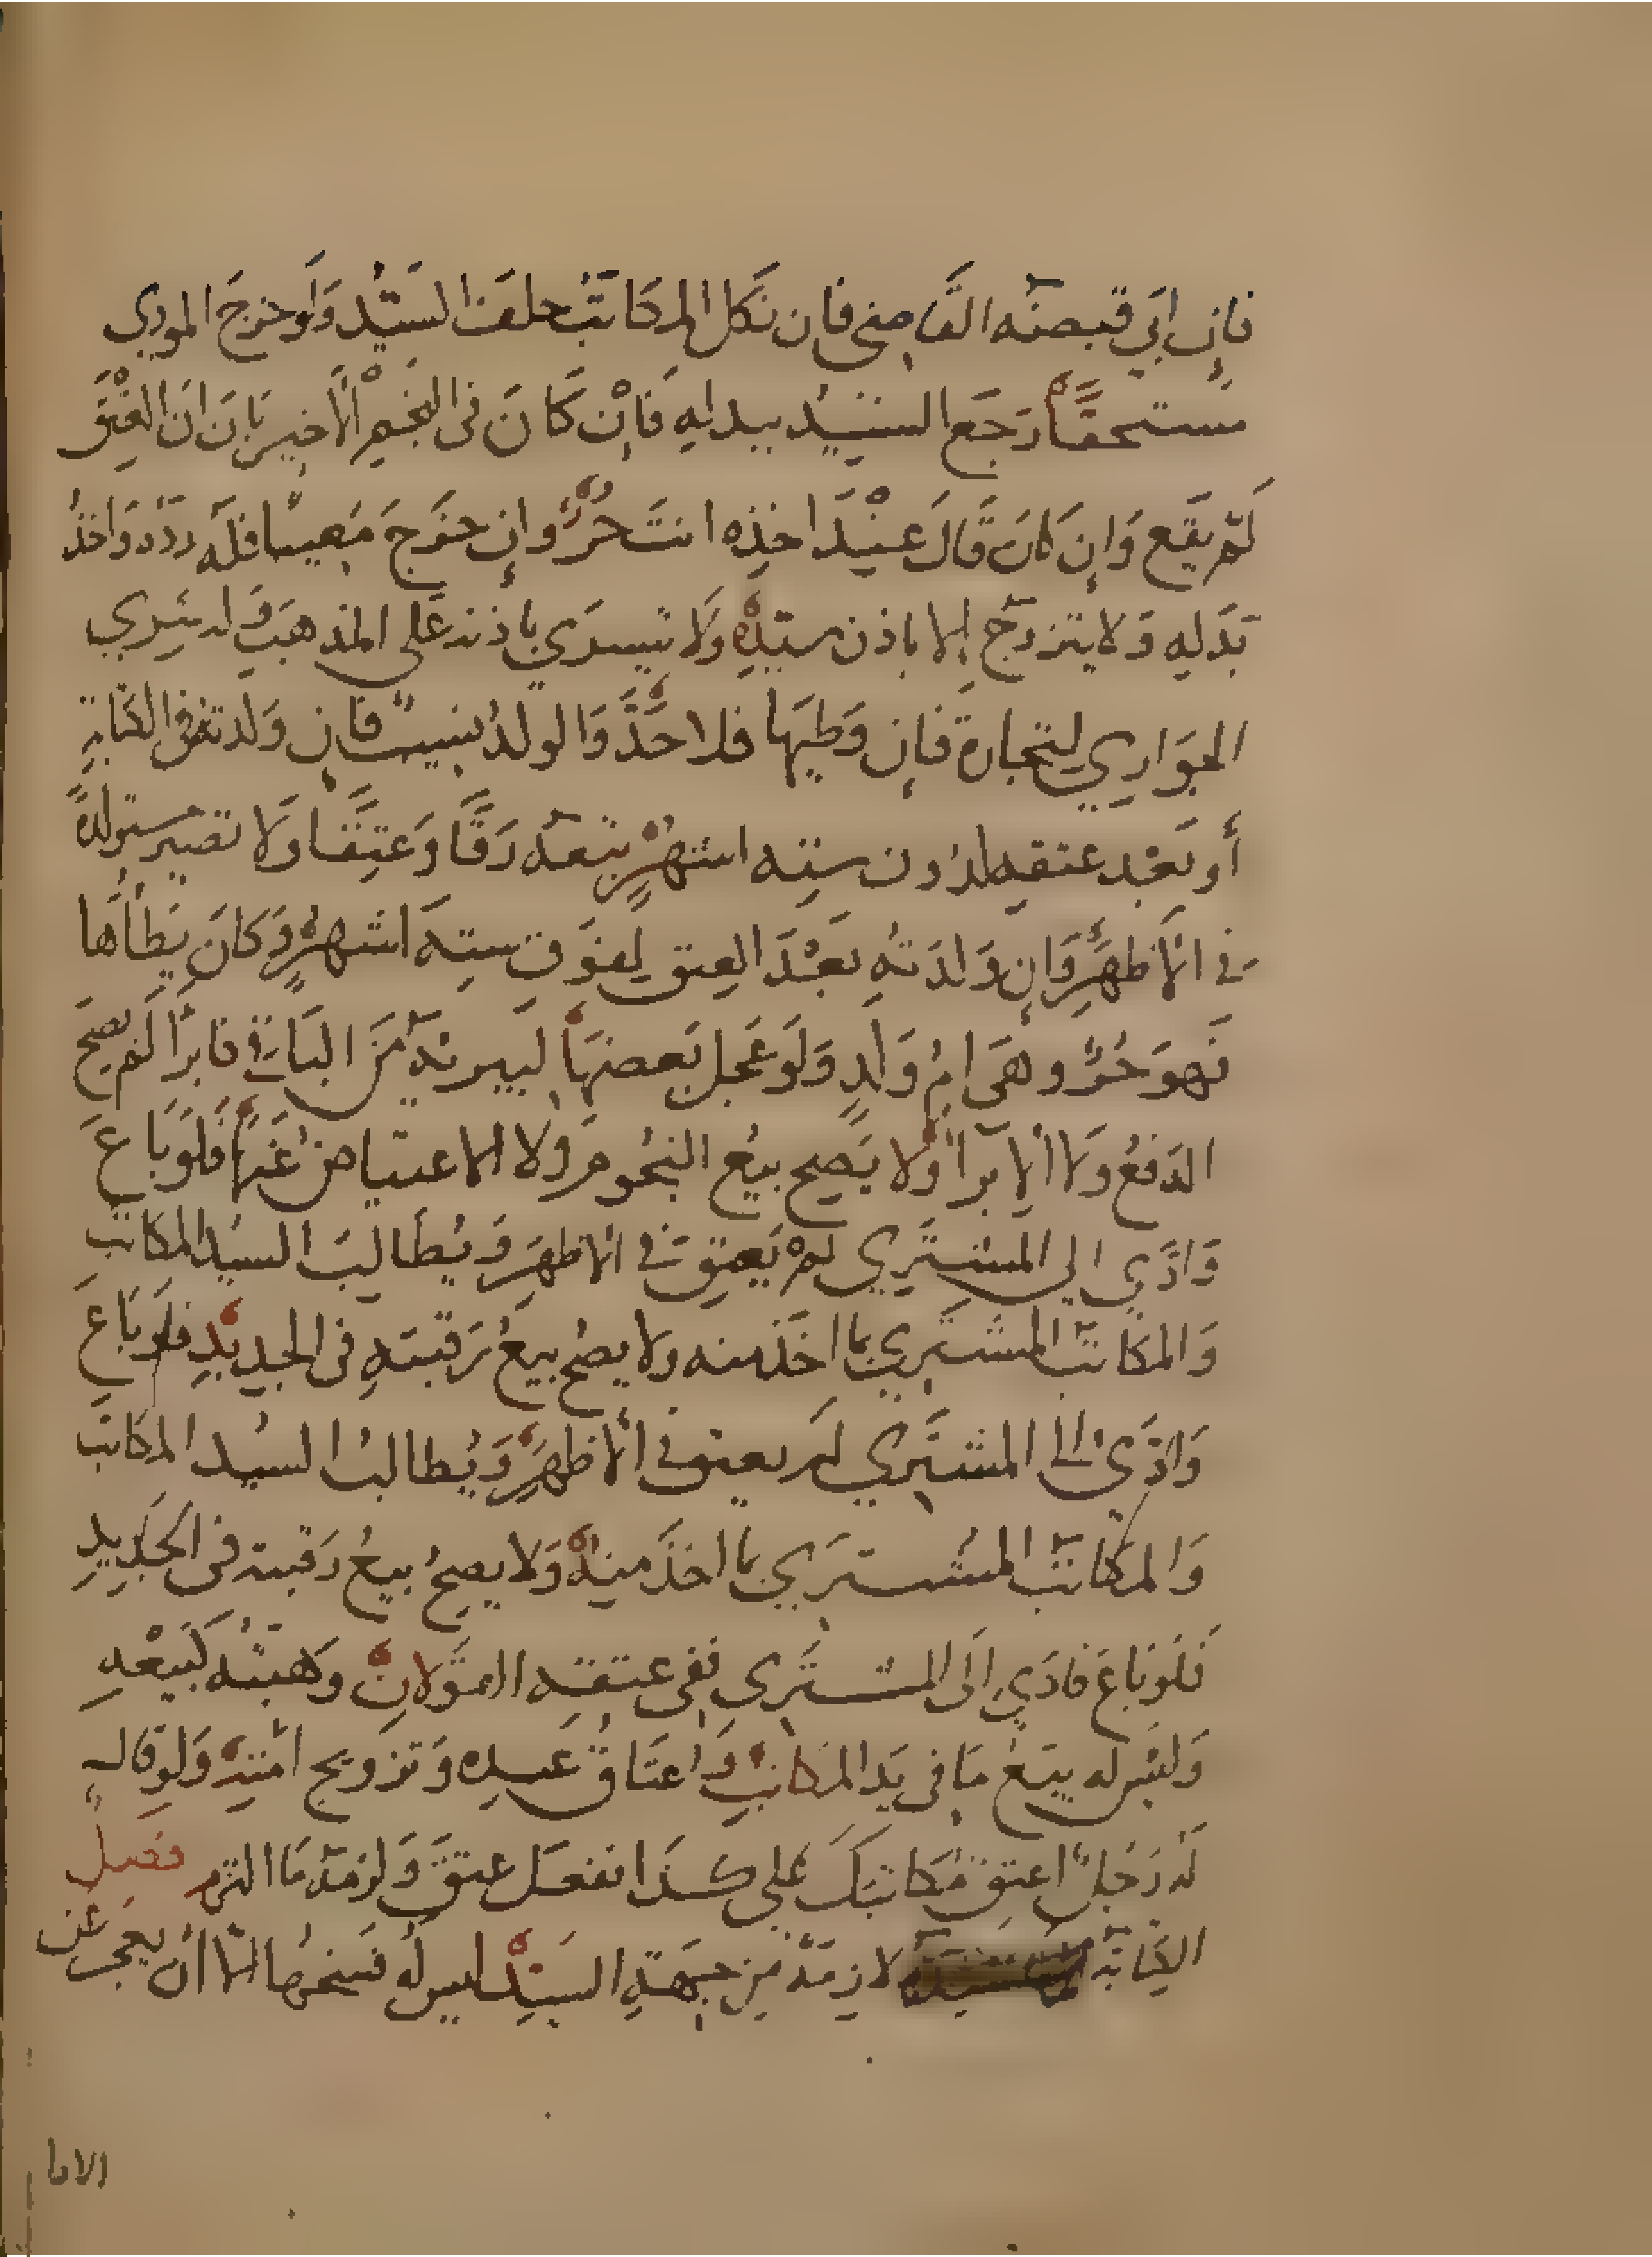 فإن ابَي قبصنه القَاضِي فان نَكَل المركَاتَبُ حلفَ السَّيُد وَلَو خرجَ المودِي
مستحقًّا رَجَع السَّيُد ببدلِهِ فَاِنْ كَانَ فى النجمِ الأخير بَانَ انَ العِتْقَ
لَمْ يقَع وَاِن كَانَ قَالَ عِنْدَ اخذِه انتَ حُرٌّ وإن خرَجَ مَعِيبًا فلَه ردّه وَاخْذُ
بَدَلِهِ وَلا يتزوجُ إلا باذن سيّدِهِ وَلَا يتسرَي باذنه عَلى المذهبَ وَله شِرِي
الجوَارِي لتِجارةٍ فَإن وَطِيهَا فلا حَدَّ وَالولدُ نسيبٌ فان وَلدته في الكتابةِ
أَو بَعْد عتقِهِ لدُون ستِه اشهُرٍ تبعَه رَقًّا وَعِتقًا وَلا تصير مستولدةً
فى الأَظهَرِ وَإن وَلدَتهُ بَعْدَ العِتقِ لِفوَقِ ستِهَ اشهرٍ وَكانَ يَطَأُهَا
فَهوَ حُرٌّ وهَى امُ وَلَدٍ وَلَو عَجل بَعضهَا لَيبريَهُ مَن البَاقي فابرأ لَم يصحَّ
الدَفعُ وَلا الإبرَأ وَلا يَصِح بيعُ النجُومِ وَلا الاعتيَاض عَنهَا فَلوَ بَاعَ
وَادَّي الي المشتَرِي لَمْ يَعتِق في الأظهرَ وَيُطَالِبُ السيُد المكاتَبَ
وَالمكَاتبُ المشتَرِي بما اخَذ منه وَلا يصحُ بيعُ رَقبتِهِ فى الجديَدِ فلَو بَاعَ
وَادَّي الى المشتَرِي لَم يعتق في الأظهرَ وَيُطالبُ السيُد المكَاتَبَ
وَالمكَاتبُ المشترَي بما اخذَ منهُ وَلا يصحُ بيعُ رَقبته فى الجَدِيدِ
فَلَو بَاعَ فادَي إلَى المشتَرِي ففى عتقِه القَوَلانِ وَهبتُه كَبَيعْهِ
وَليسَ له بيَعُ مَا فى يَد المكاتِبِ وَاعتَاقُ عَبدِه وَتزويج امَتِهِ وَلو قاله
لَه رَجُلٌ اعتِق مُكاتبَكَ عَلى كذَا ففعَل عتقَ وَلزمَه مَا التزم فصل
الكِتَابَة لازمَة مِن جِهَةِ السَيّدِ ليس لَه فَسخُها الّا أن يعجز عَن
الادا